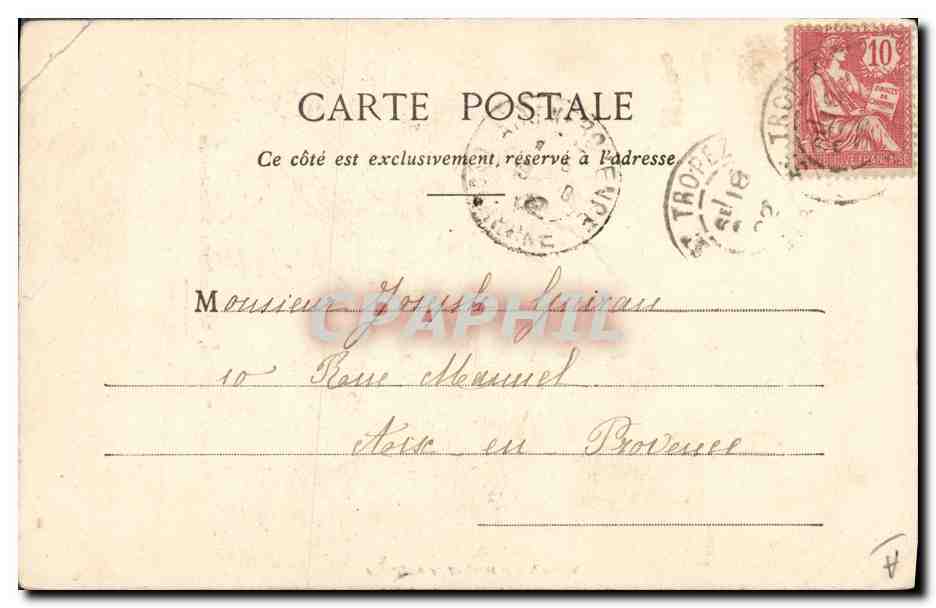 CARTE POSTALE
Ce côté est exclusivement réservé à l'adresse.
10
DROITS DE L'HOMME
TROPEZ
TROPEZ
SE
18
PROVENCE
Monsieur Joseph Guiran
CPAPHIL
10 Rue Manuel
Aix en Provence
A